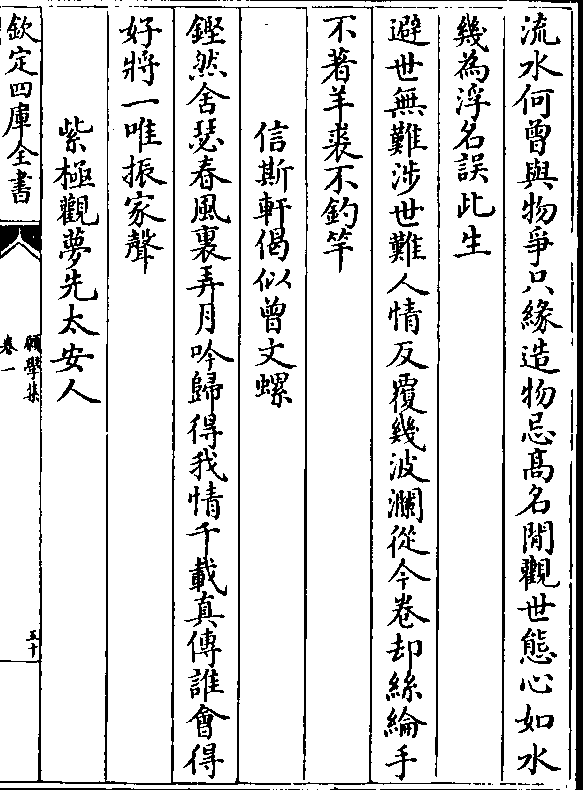 流水何曾與物爭只緣造物忌髙名閒觀世態心如水
幾為浮名誤此生
避世無難涉世難人情反覆幾波瀾從今卷却絲綸手
不著羊裘不釣竿
信斯軒偈似曾文螺
鏗然舍瑟春風裏弄月吟歸得我情千載真傳誰會得
好將一唯振家聲
紫極觀夢先太安人
欽定四庫全書
願學集
卷一
五十